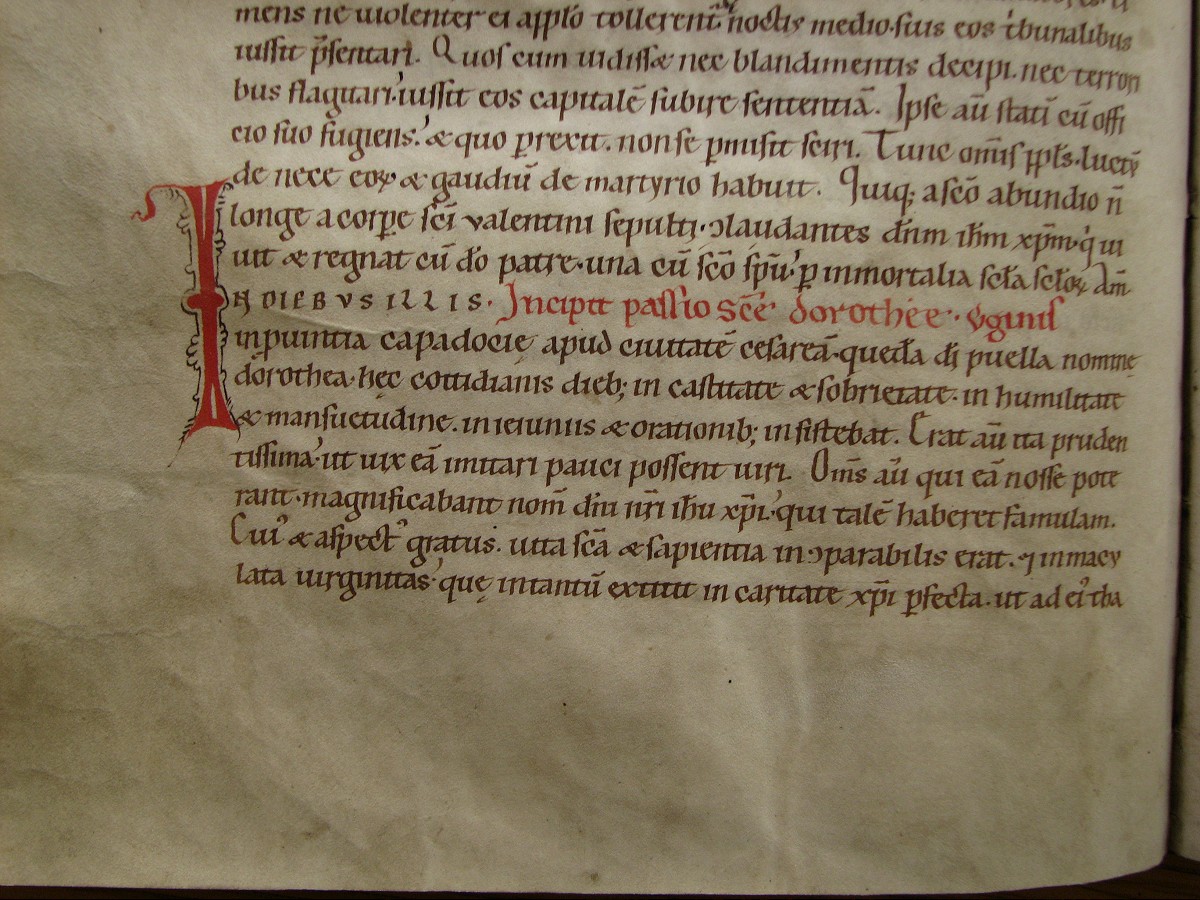 mens ne uiolenter ei appło tollerent᷑. noctis medio. suis eos t͛bunalibus
iussit p̄sentari. Quos cum uidiss& nec blandimentis decipi. nec terrori
bus flagitari. iussit eos capitalē subire sententiā. Ipse aū statī cū offi
cio suo fugiens. & quo ꝑrexit. non se ꝑmisit sciri. Tunc om̄is ppl̄s. luctū
de nece eoꝝ & gaudiū de martyrio habuit. Quiq; a sc̄o abundio n̄
longe a corꝑe sc̄i valentini sepulti. ↄlaudantes dn̄m ih̄m xp̄m. q̇ ui
uit & regnat cū dō patre. una cū sc̄o sp̄u. ꝑ inmortalia scła scłoꝝ. Am̄.
IN DIEBVS ILLIS. Incipit passio sc̄ę dorothęe. v̄ginis
in ꝓuintia capadocię apud ciuitatē cesareā. quedā dī puella nomine
dorothea. hęc cottidianis dieb; in castitate & sobrietate. in humilitate
& mansuetudine. in ieiuniis & orationib; insistebat. Erat aū ita pruden
tissima. ut uix eā imitari pauci possent uiri. Om̄s aū qui eā nosse pote
rant. magnificabant nom̄ dn̄i nr̄i ih̄u xp̄i. qui talē haberet famulam.
Cui᾿ & aspect᾿ gratus. uita sc̄a & sapientia inↄparabilis erat. ⁊ inmacu
lata uirginitas. quę intantū extitit in caritate xp̄i ꝑfecta. ut ad ei᾿ tha